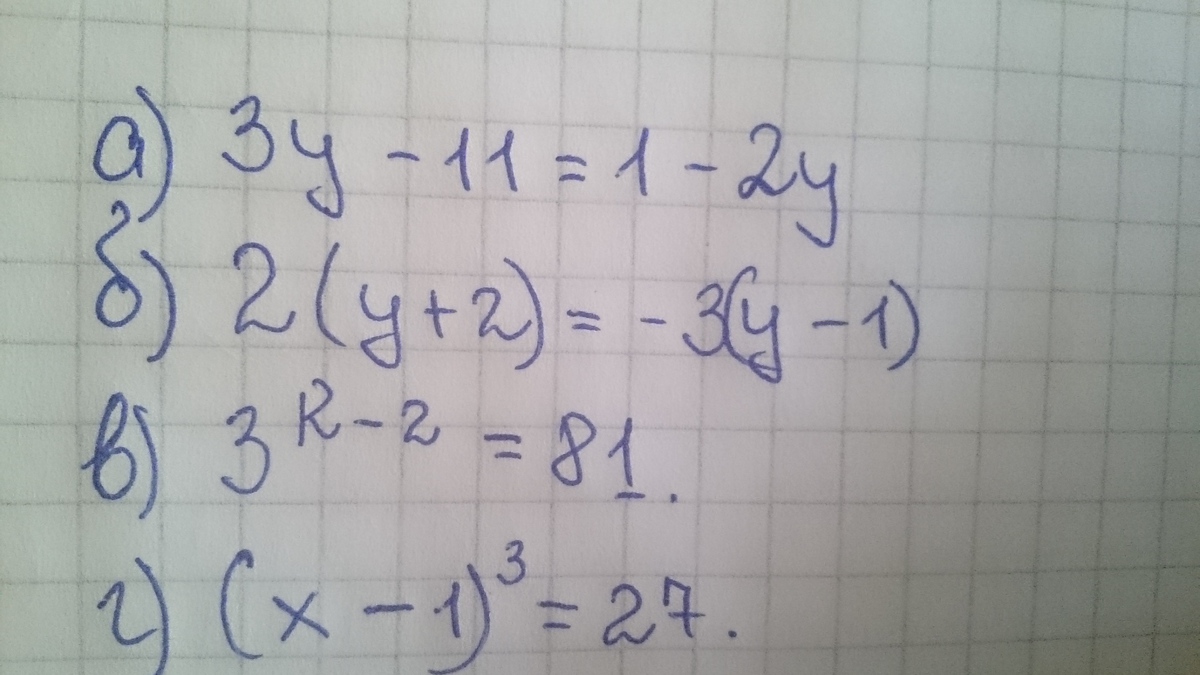 а) 3y - 11 = 1 - 2y
б) 2(y+2) = -3(y-1)
в) 3^{k-2} = 81.
г) (x-1)^3 = 27.